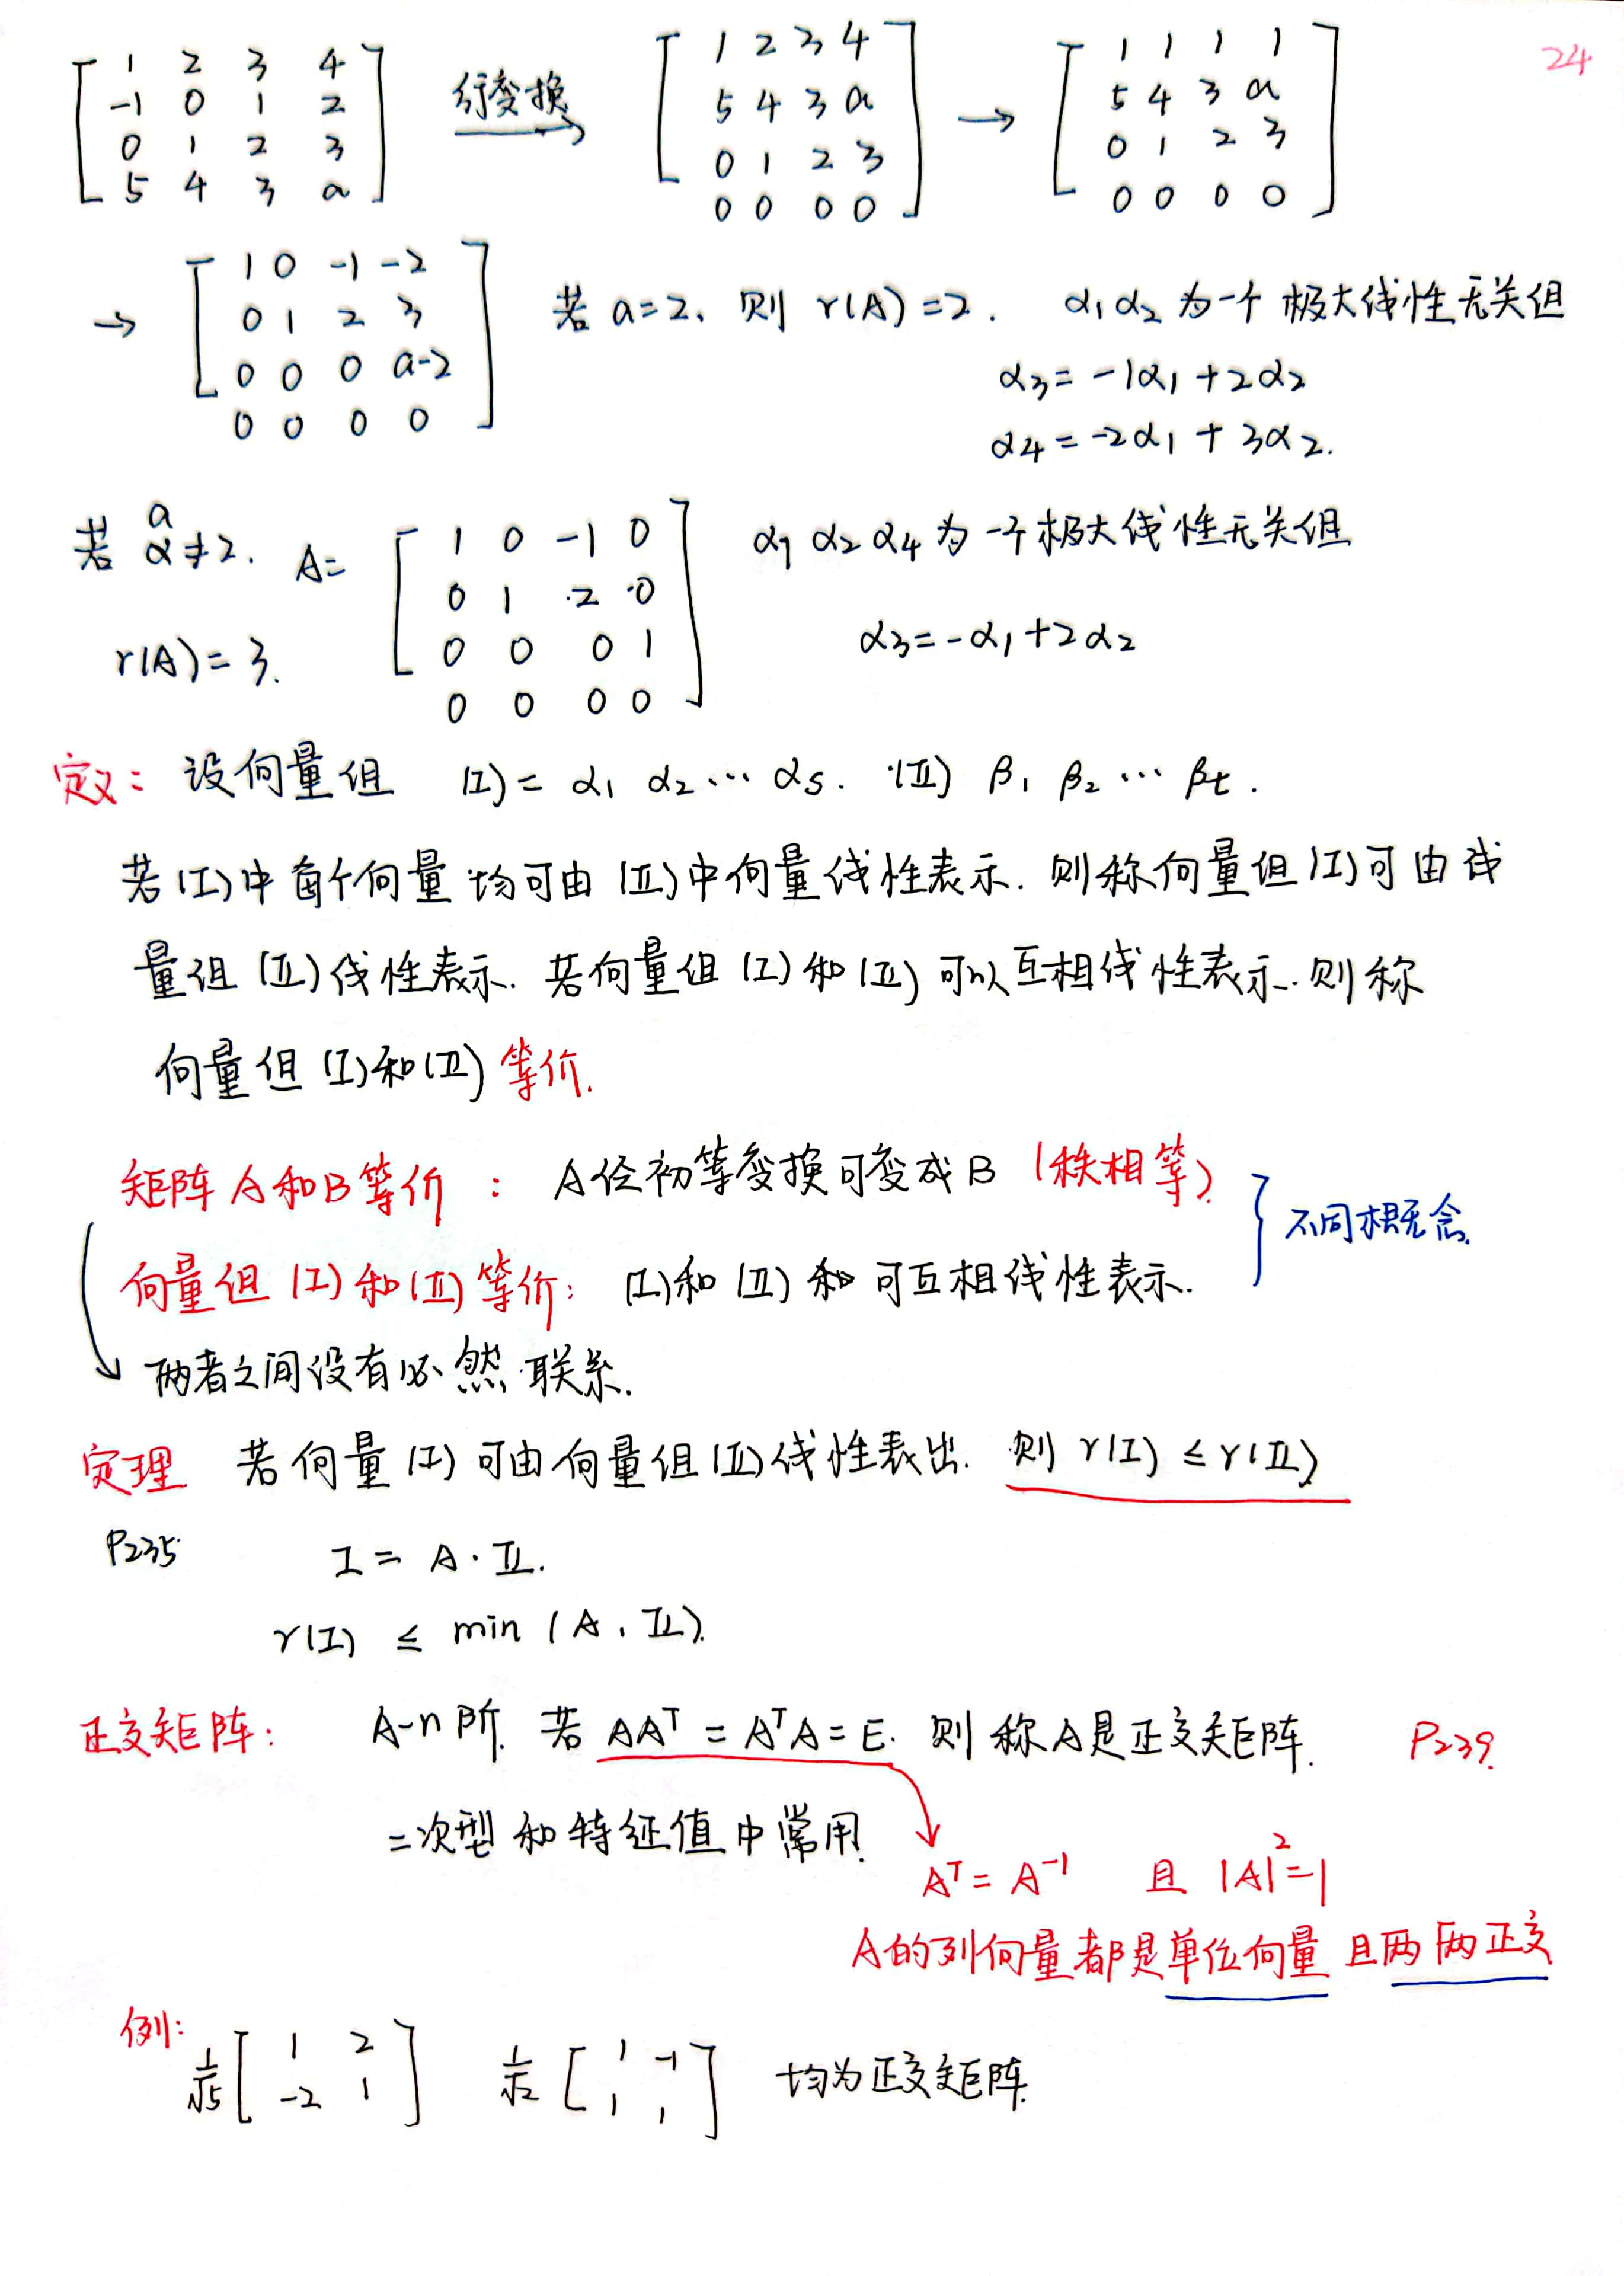 24
[1 2 3 4; -1 0 1 2; 0 1 2 3; 5 4 3 a] 行变换→ [1 2 3 4; 5 4 3 a; 0 1 2 3; 0 0 0 0] → [1 1 1 1; 5 4 3 a; 0 1 2 3; 0 0 0 0]
→ [1 0 -1 -2; 0 1 2 3; 0 0 0 a-2; 0 0 0 0] 若 a=2、则 r(A)=2. α₁α₂为一个极大线性无关组
α₃=-1α₁+2α₂
α₄=-2α₁+3α₂.
若 a≠2. A= [1 0 -1 0; 0 1 2 0; 0 0 0 1; 0 0 0 0] α₁ α₂ α₄为一个极大线性无关组
r(A)=3. α₃=-α₁+2α₂
定义: 设向量组 (I)= α₁ α₂…αs. (II) β₁ β₂…βt.
若(I)中每个向量均可由(II)中向量线性表示. 则称向量组(I)可由
量组(II)线性表示. 若向量组(I)和(II)可以互相线性表示. 则称
向量组(I)和(II)等价.
矩阵A和B等价: A经初等变换可变成B (秩相等)
} 不同概念.
向量组(I)和(II)等价: (I)和(II) 可互相线性表示.
两者之间没有必然联系.
定理 若向量(I)可由向量组(II)线性表出. 则 r(I) ≤ r(II)
P235 I = A·II.
r(I) ≤ min(A, II).
正交矩阵: A-n阶. 若 AAᵀ=AᵀA=E. 则称A是正交矩阵. P239.
二次型和特征值中常用.
Aᵀ=A⁻¹ 且 |A|²=1
A的列向量都是单位向量且两两正交
例: 1/√5 [1 2; -2 1] 1/√2 [1 -1; 1 1] 均为正交矩阵.